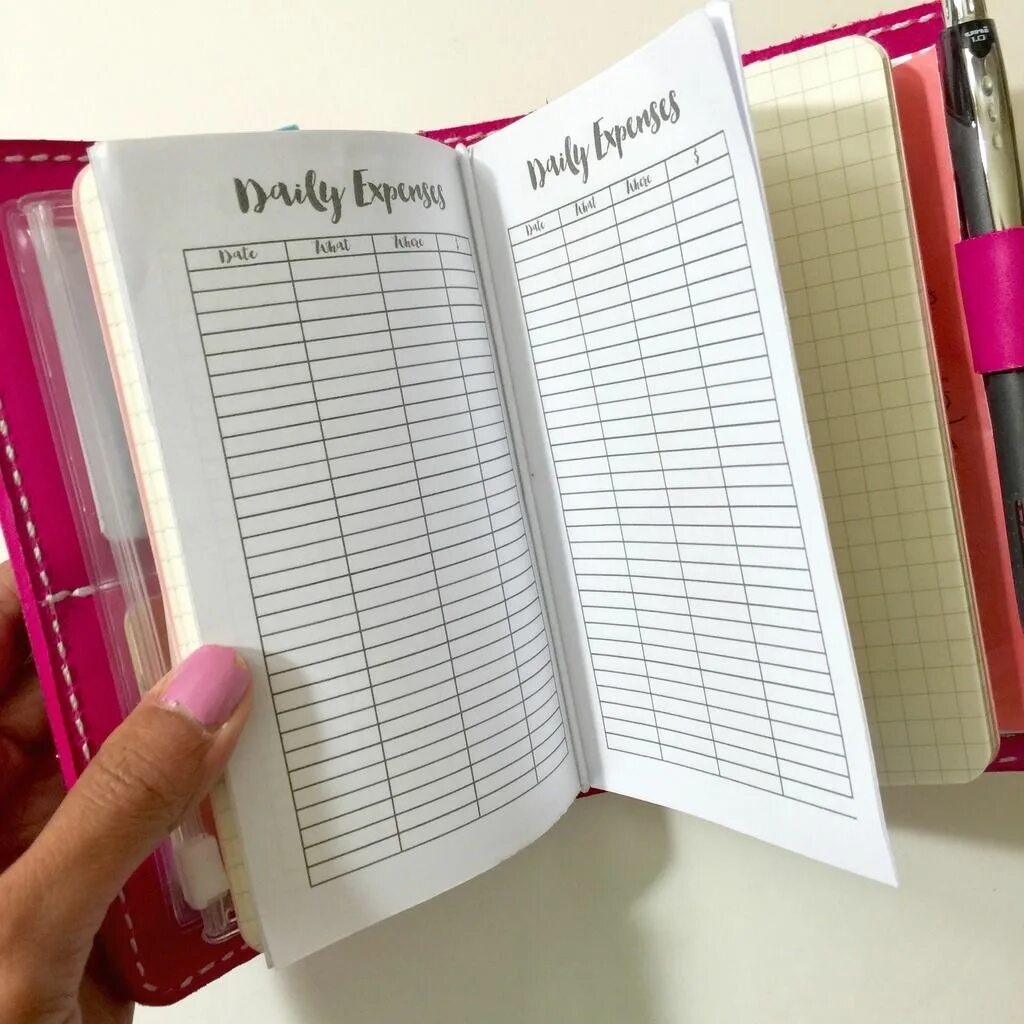 Daily Expenses
Date What Where $
Daily Expenses
Date What Where $
uni
1.0